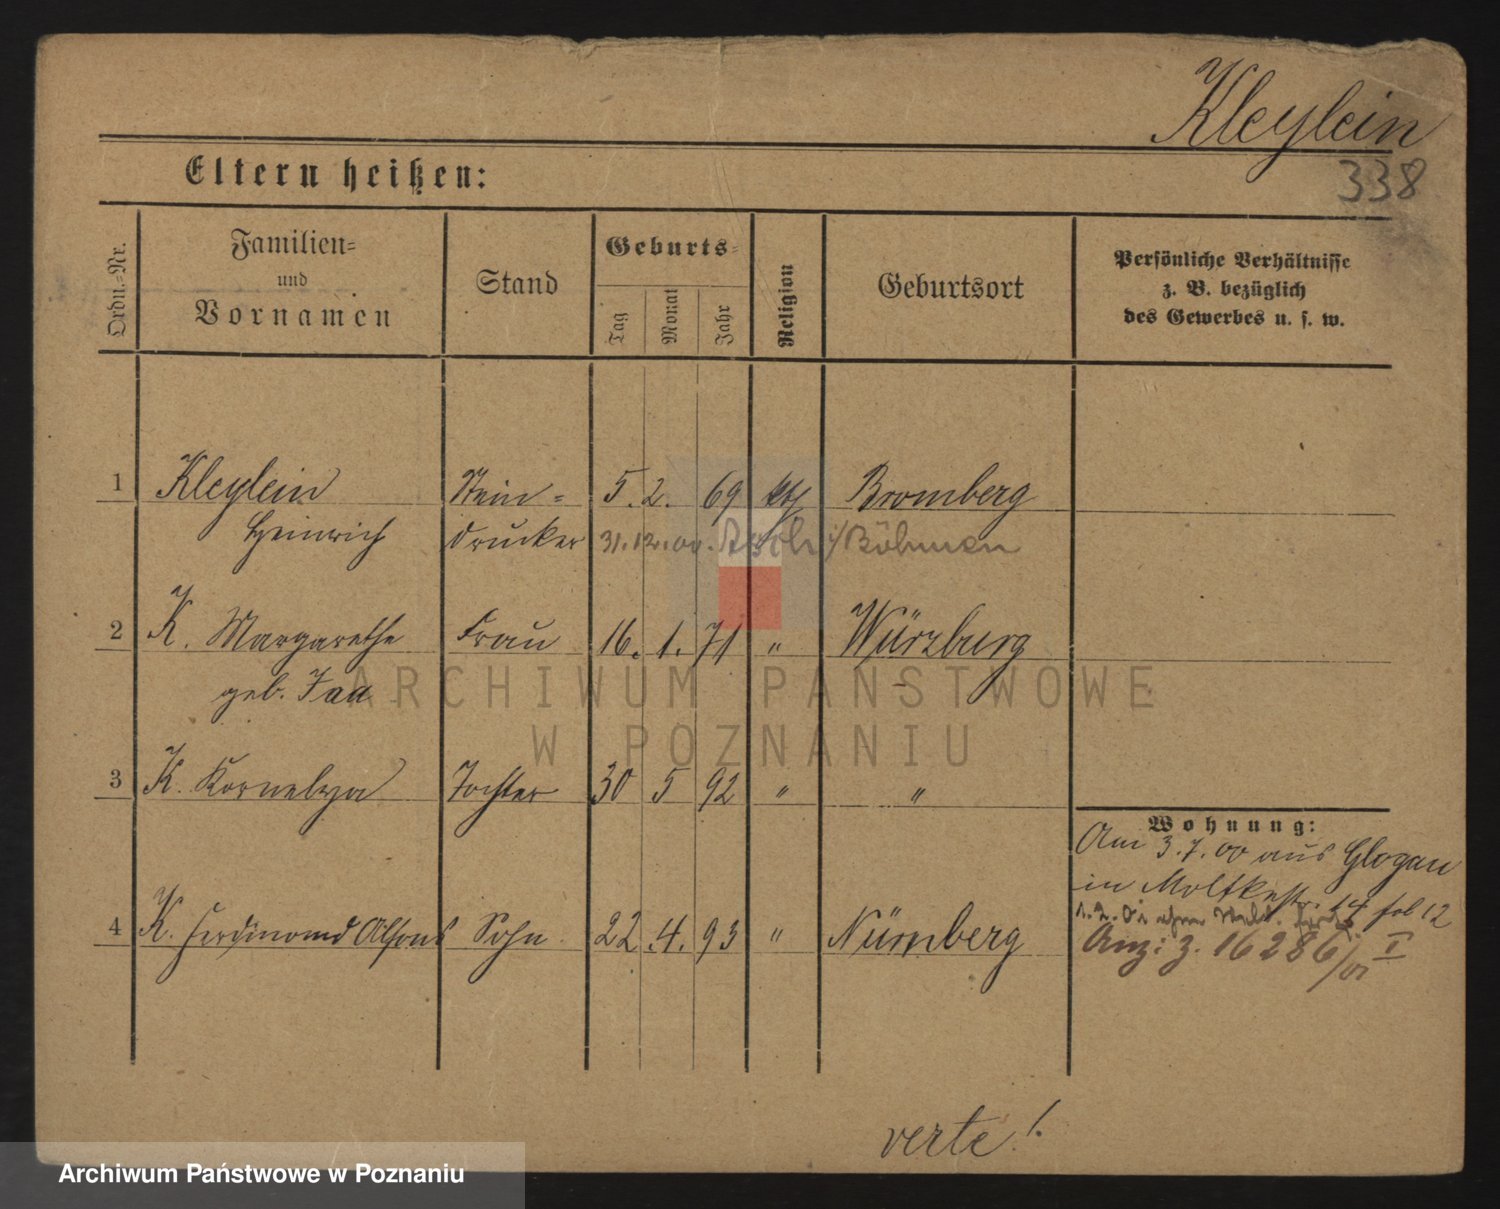 Kleylein
338
Eltern heißen:
Ordn.-Nr.
Familien-
und
Vornamen
Stand
Geburts-
Tag
Monat
Jahr
Religion
Geburtsort
Persönliche Verhältnisse
z. B. bezüglich
des Gewerbes u. s. w.
1 Kleylein Stein- 5. 2. 69 kth Bromberg
Heinrich drucker 31.12.00. Asch i/Böhmen
2 K. Margarethe Frau 16. 1. 71 " Würzburg
geb. Faa
3 K. Kornelya Tochter 30 5 92 " "
Wohnung:
Am 3.7.00 aus Glogau
in Moltkestr. 14 fol 12
4 K. Ferdinand Alfons Sohn 22 4. 93 " Nürnberg
Anz: z. 16286/01 I
verte!
ARCHIWUM PAŃSTWOWE
W POZNANIU
Archiwum Państwowe w Poznaniu